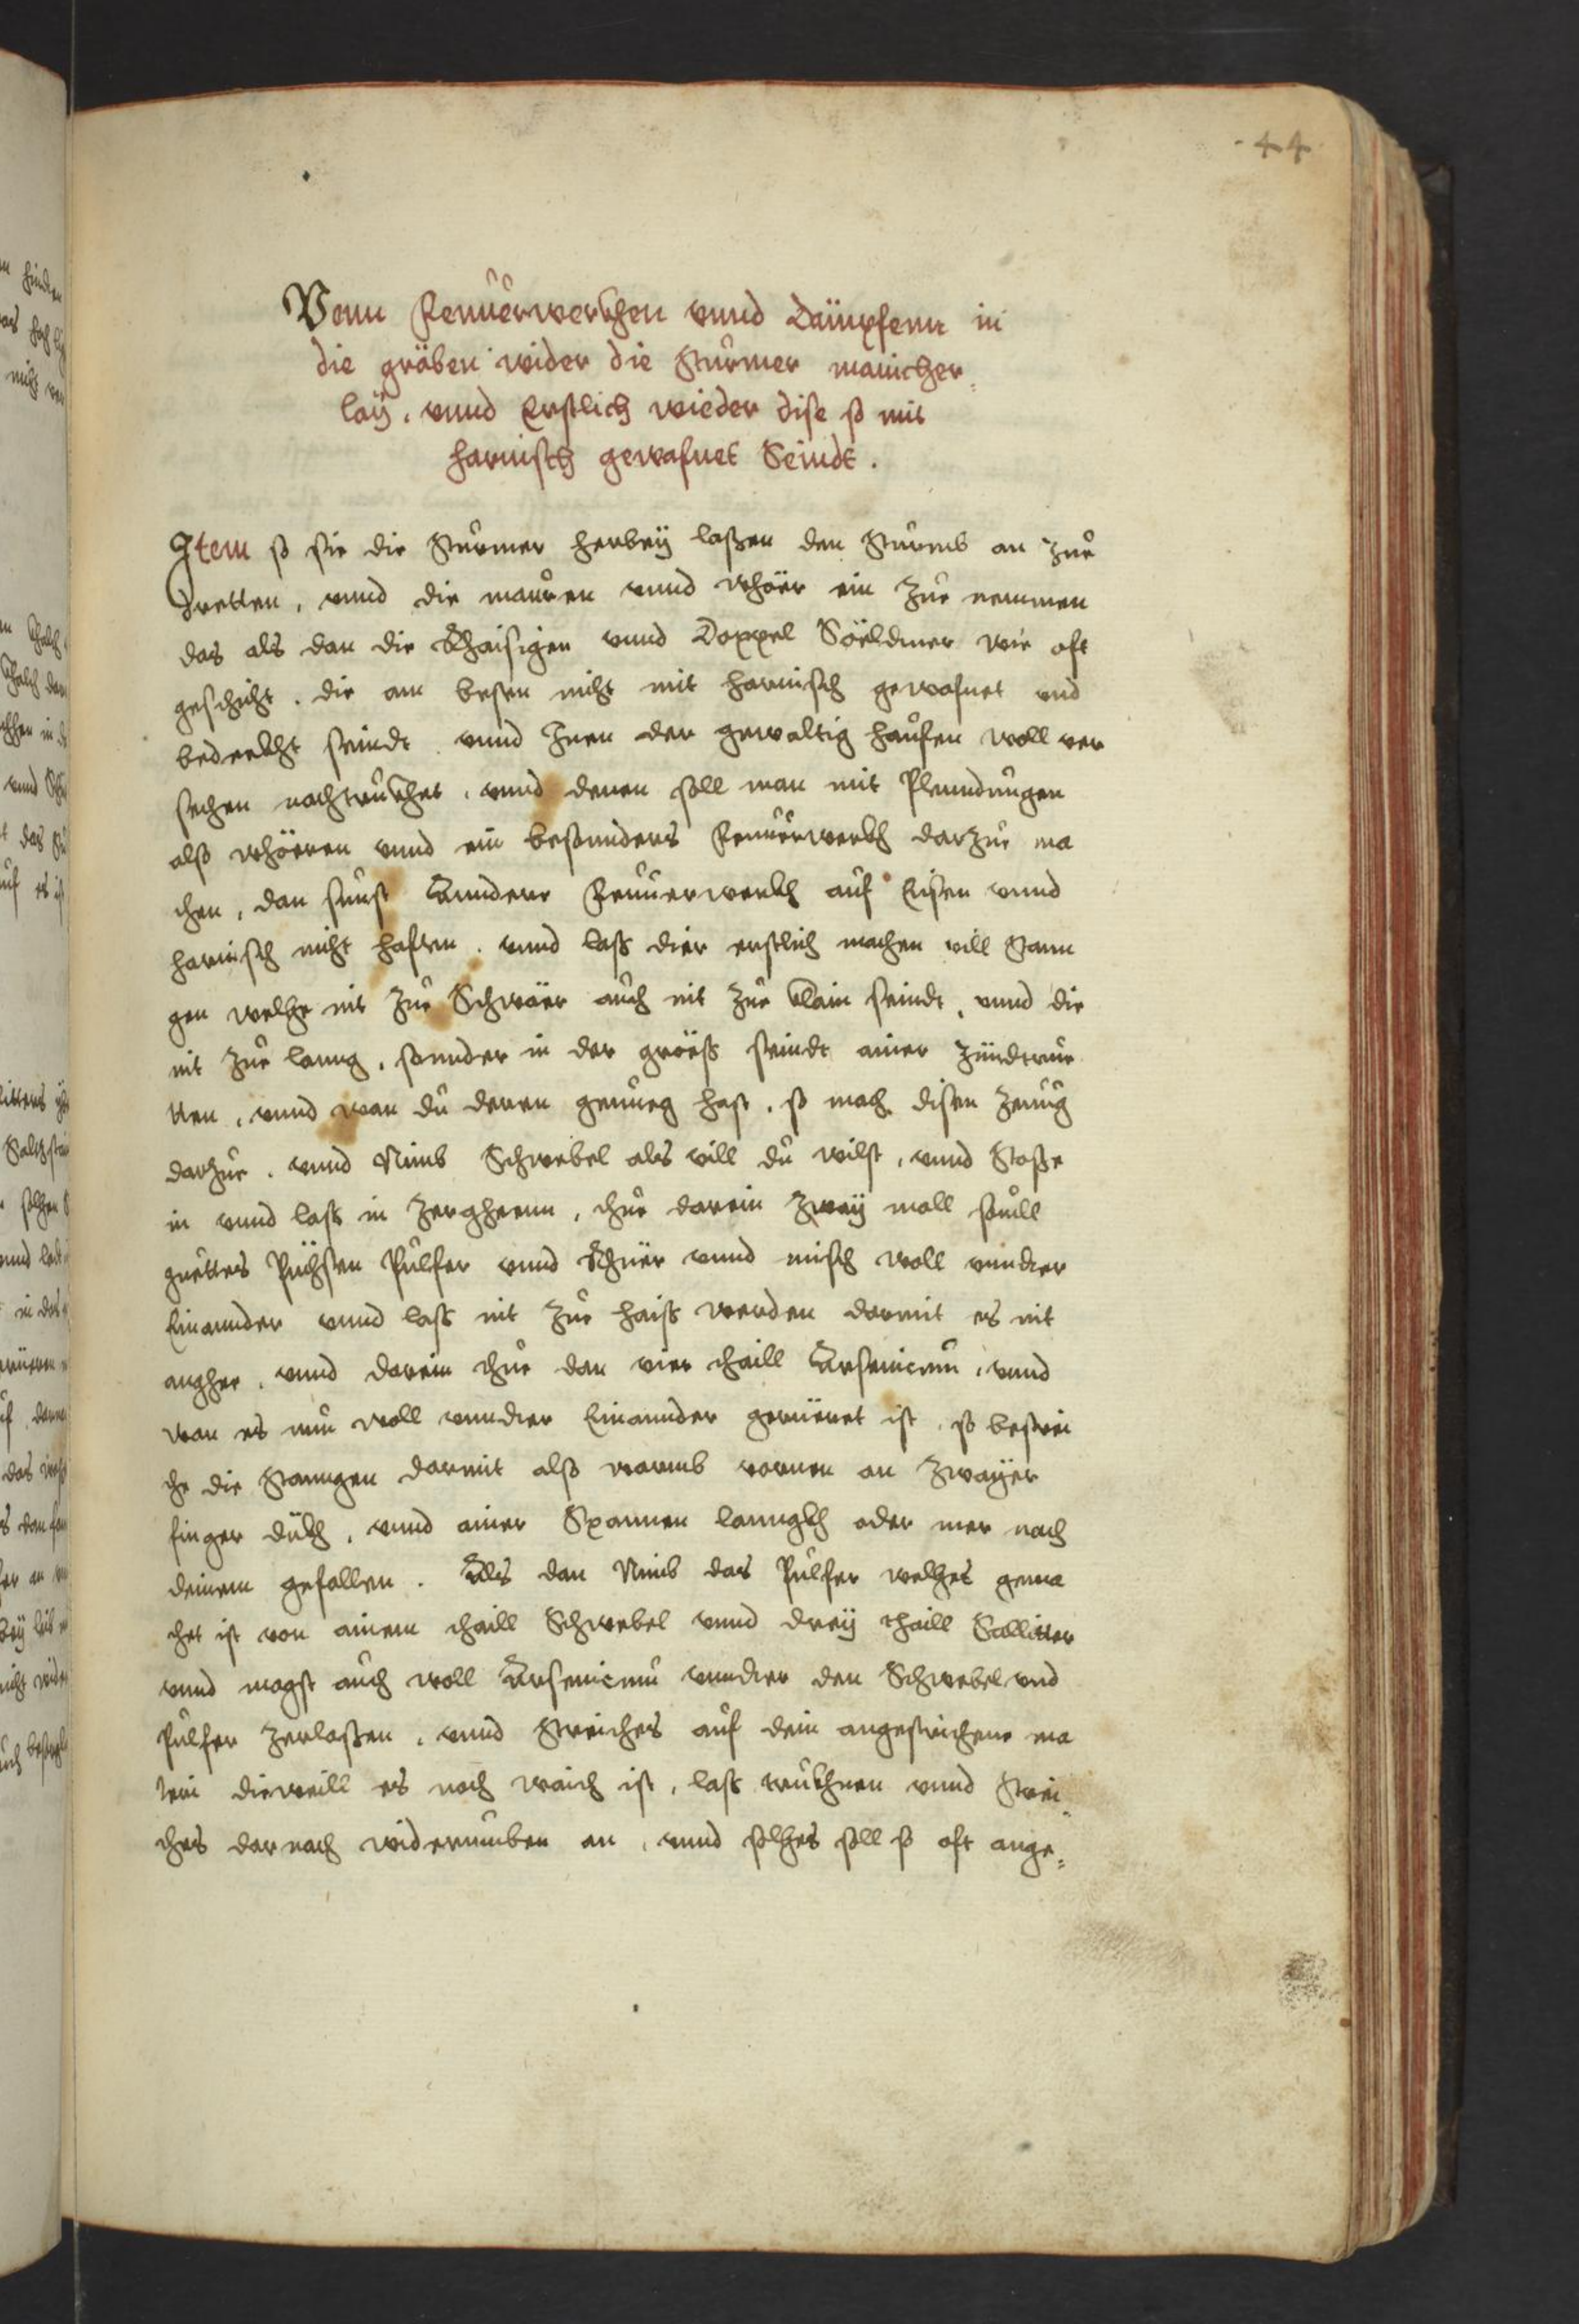 44
Vonn Feuerwerkhen vnnd Dämpfenn in
die gräben wider die Sturmer manicher,
laÿ. vnnd Erstlich wieder dise so mit
harnisch gewafnet Seindt.
Item so sie die Sturmer herbeÿ laßen den Sturmb an zue
dretten, vnnd die mauren vnnd whöer ein zue nemmen
das als dan die Rhaisigen vnnd Doppel Söeldner wie oft
geschicht. die am besten nicht mit harnisch gewafnet vnd
bedeckht seindt. vnnd Inen der gewaltig haufen woll ver
sechen nachtruckhet. vnnd denen soll man mit Plenndungen
alß whörren vnnd ein besonnders Feuerwerkh darzue ma
chen, dan sunst Anndere Feuuerwerkh auf Eisen vnnd
harnisch nicht haften. vnnd laß dier erstlich machen vill Stann
gen welche nit zue Schwäer auch nit zue klain seindt, vnnd die
nit zue lanng, sonnder in der größ seindt ainer Zündtrue
tten, vnnd wan du deren genueg hast, so mach disen zeuug
darzue. vnnd Nimb Schwebel als vill du wilst, vnnd Stosse
in vnnd laß in zergheenn, thue darein zweÿ mall souill
guettes Püchsen Pulfer vnnd Rhüer vnnd misch woll vnnder
Einannder vnnd laß nit zue haiß werden darmit es nit
anghee. vnnd darein thue dan vier thaill Arsenicum, vnnd
wan es nun woll vnnder Einannder gerüeret ist, so bestrei
che die Stanngen darmit alß warmb vornen an zwaÿer
finger dükh, vnnd ainer Spannen lanngkh oder mer nach
deinem gefallen. Als dan Nimb das Pulfer welches gema
chet ist von ainem thaill Schwebel vnnd dreÿ thaill Sallitter
vnnd magst auch woll Arsenicum vnnder den Schwebel vnd
Pulfer zerlaßen, vnnd Streiches auf dein angestrichene ma
teri dieweill es noch waich ist, laß trukhnen vnnd Strei
ches darnach widerumben an, vnnd solches soll so oft ange,